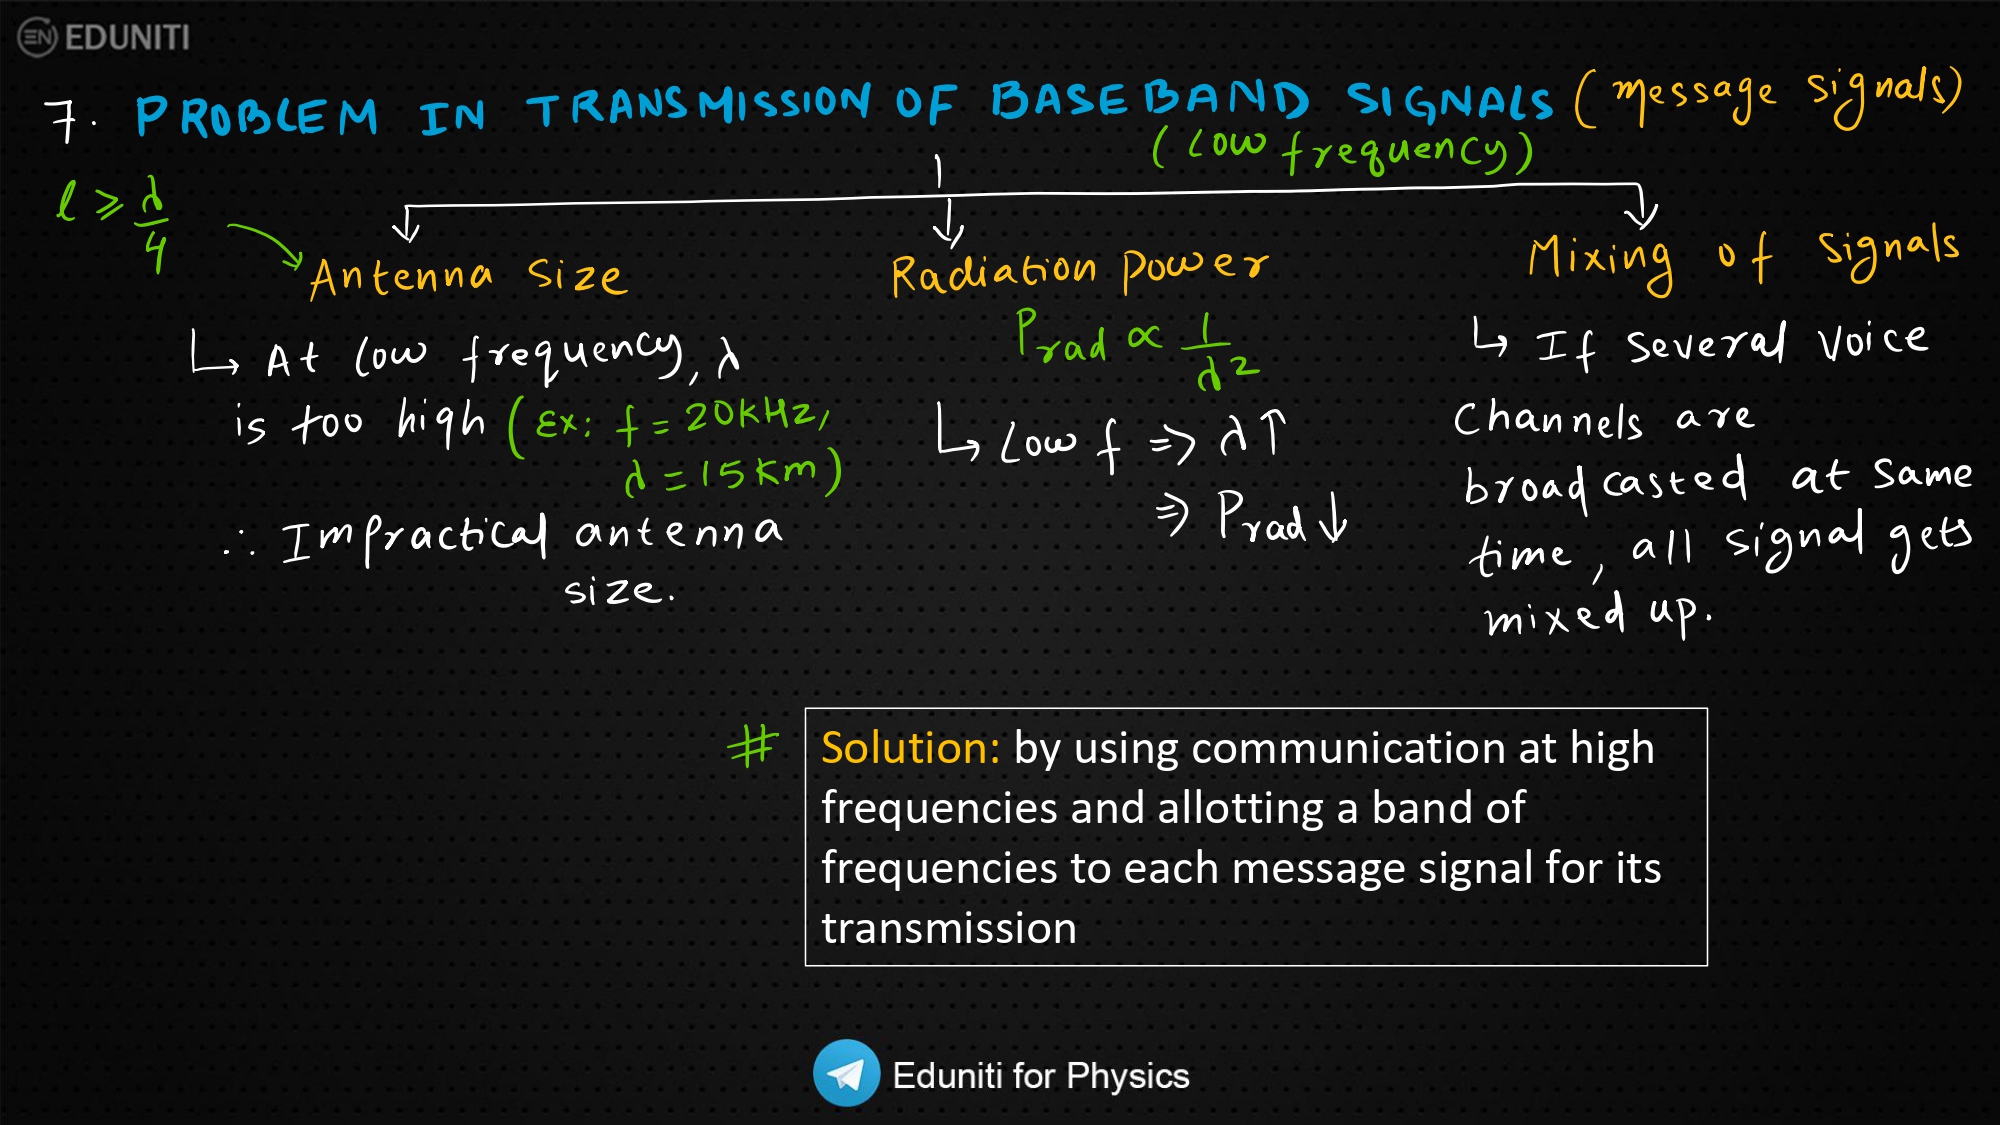 EN EDUNITI
7. PROBLEM IN TRANSMISSION OF BASEBAND SIGNALS (message signals)
(Low frequency)
l ⩾ λ/4
Antenna Size
↳ At low frequency, λ
is too high (Ex: f = 20KHz,
λ = 15Km)
∴ Impractical antenna
size.
Radiation Power
Prad ∝ 1/λ²
↳ Low f => λ↑
=> Prad ↓
Mixing of Signals
↳ If Several Voice
Channels are
broadcasted at same
time, all signal gets
mixed up.
# Solution: by using communication at high
frequencies and allotting a band of
frequencies to each message signal for its
transmission
Eduniti for Physics